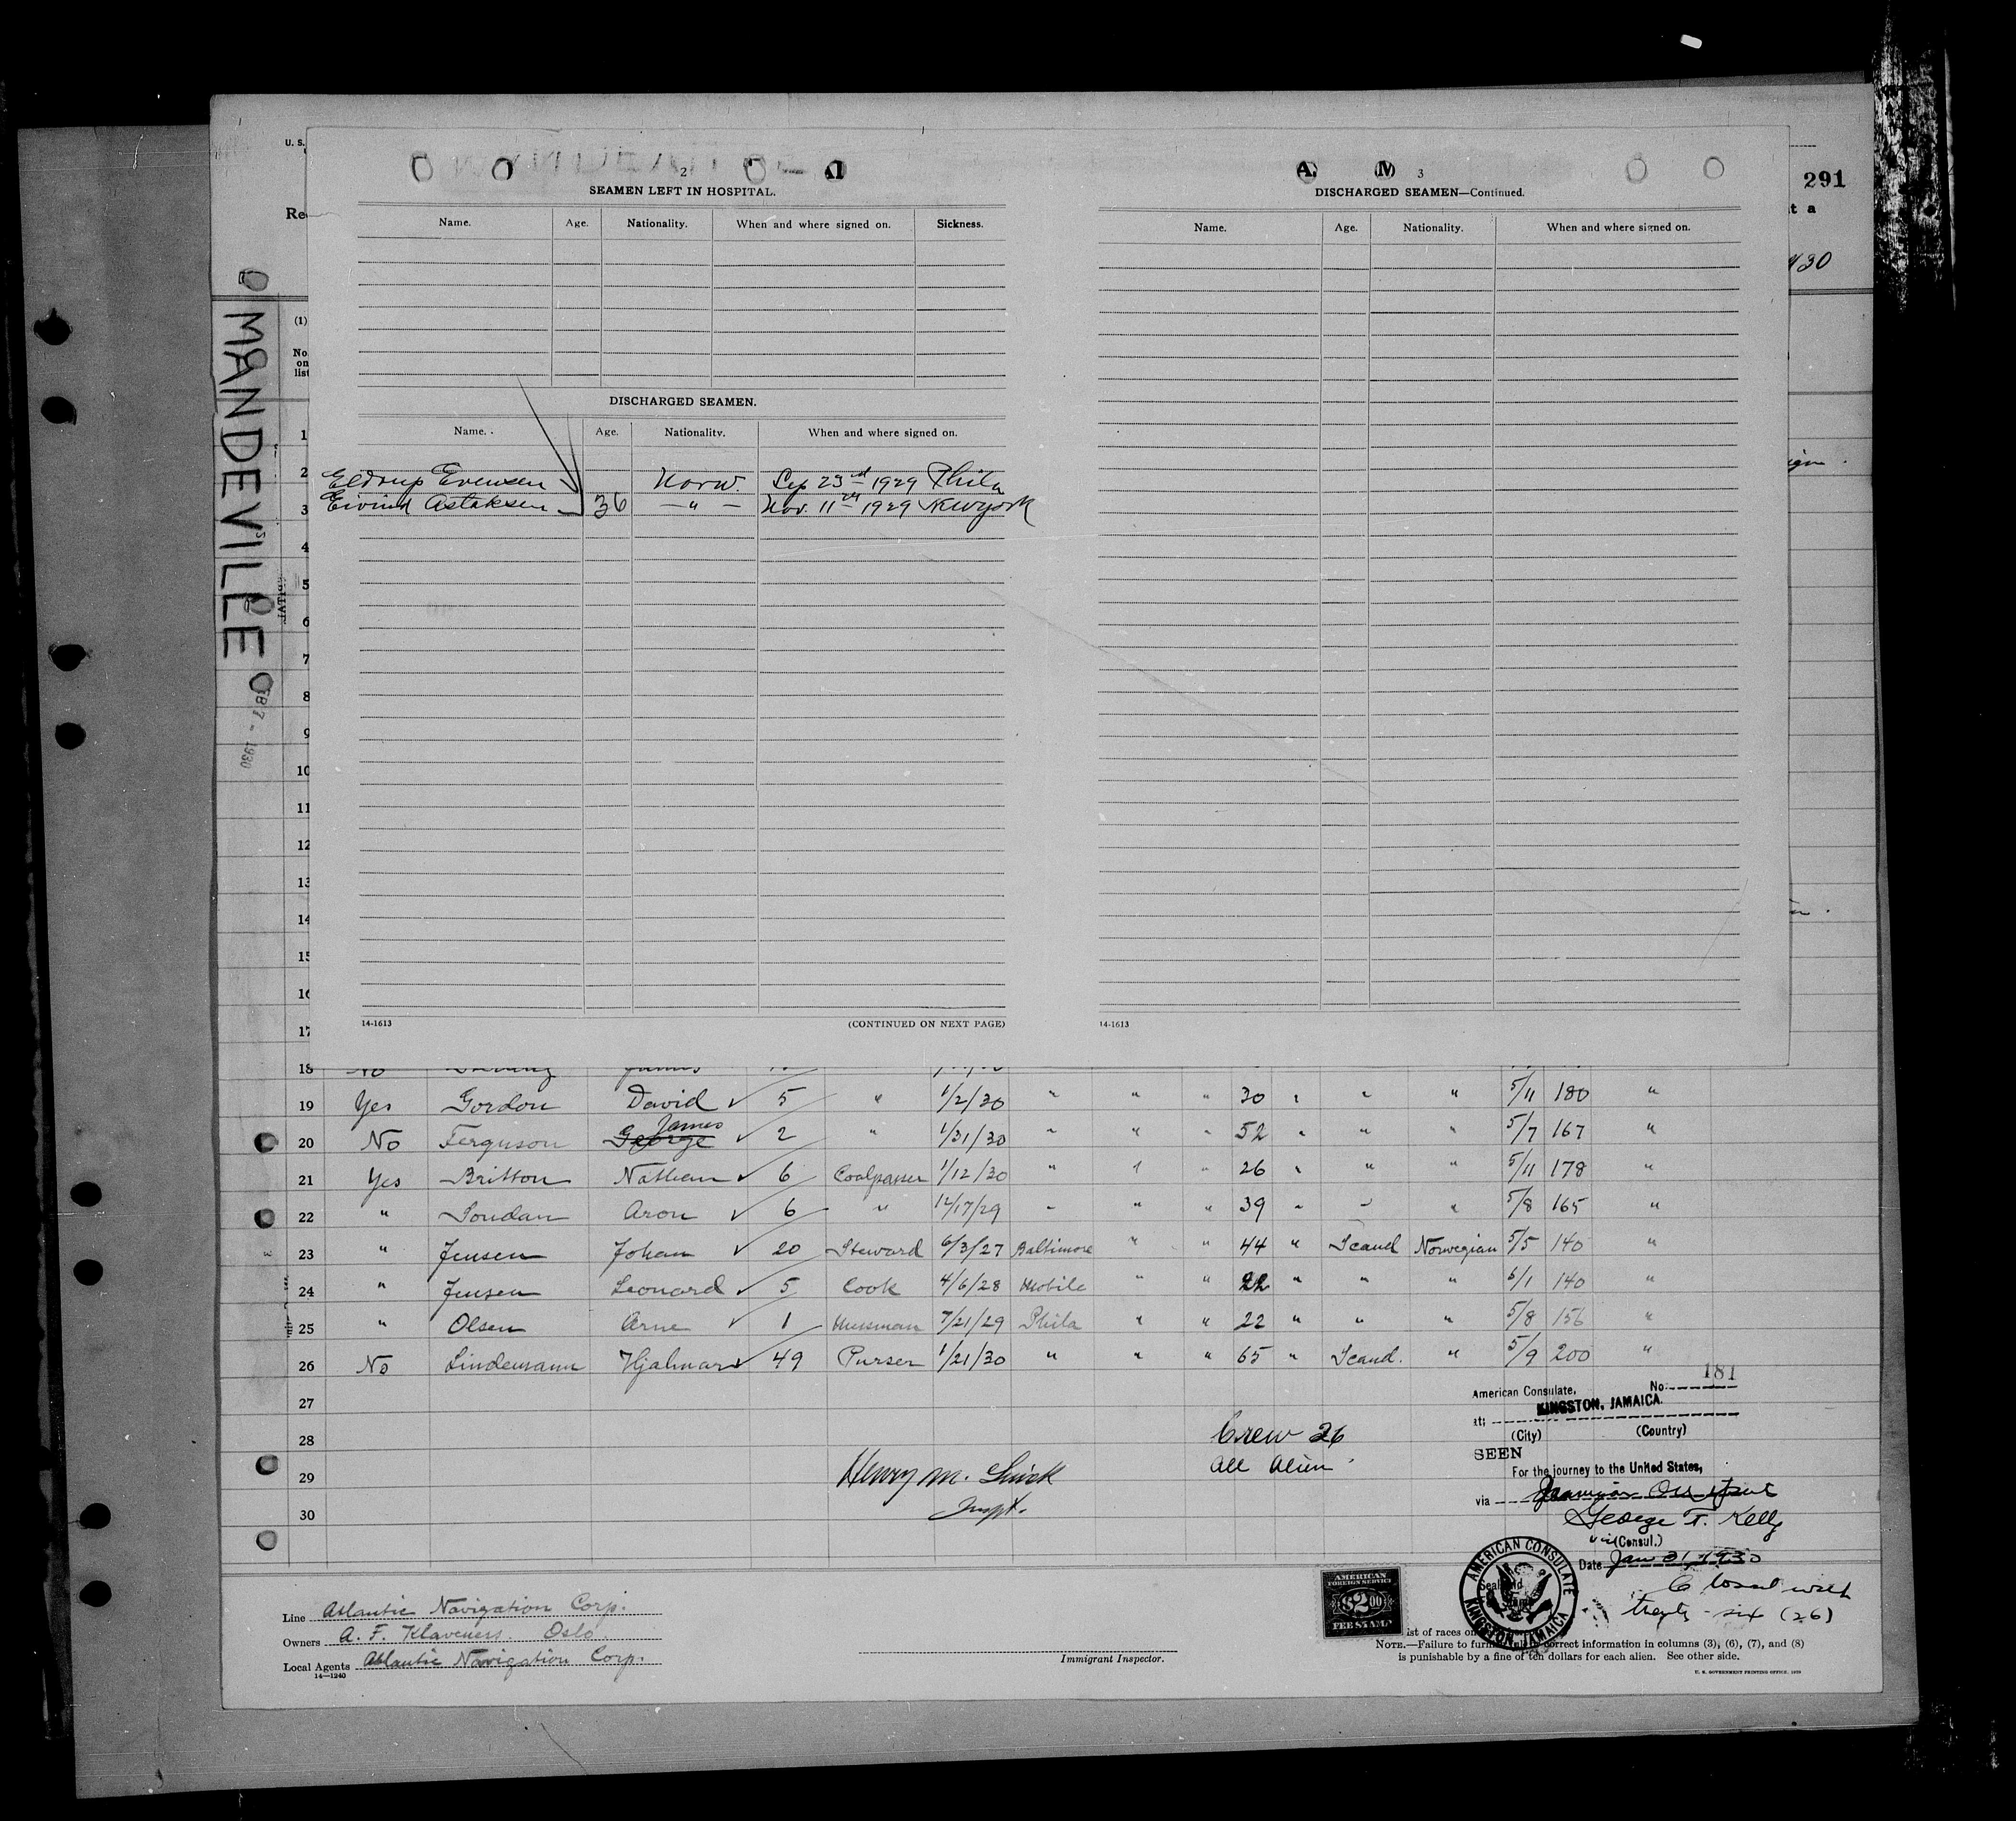 2
SEAMEN LEFT IN HOSPITAL.
Name. Age. Nationality. When and where signed on. Sickness.
DISCHARGED SEAMEN.
Name. Age. Nationality. When and where signed on.
Eldrup Evensen Norw. Sep 23rd 1929 Phila
Eivind Aslaksen 36 — " — Nov. 11th 1929 Newyork
14-1613 (CONTINUED ON NEXT PAGE)
A. M 3
DISCHARGED SEAMEN—Continued.
Name. Age. Nationality. When and where signed on.
14-1613
U. S.
Re
291
t a
(1)
No. on list
MANDEVILLE
1930
1
2
3
4
5
6
7
8
9
10
11
12
13
14
15
16
17
18 No James
19 Yes Gordon David ✓ 5 " 1/2/30 " " " 30 " " " 5/11 180 "
20 No Ferguson George James ✓ 2 " 1/31/30 " " " 52 " " " 5/7 167 "
21 Yes Britton Nathan ✓ 6 Coalpasser 1/12/30 " " " 26 " " " 5/11 178 "
22 " Soudan Aron ✓ 6 " 12/17/29 " " " 39 " " " 5/8 165 "
23 " Jensen Johan ✓ 20 Steward 6/3/27 Baltimore " " 44 " Scand Norwegian 5/5 140 "
24 " Jensen Leonard ✓ 5 Cook 4/6/28 Mobile " " 22 " " " 6/1 140 "
25 " Olsen Arne ✓ 1 Messman 7/21/29 Phila " " 22 " " " 5/8 156 "
26 No Lindemann Hjalmar ✓ 49 Purser 1/21/30 " " " 65 " Scand. " 5/9 200 "
27
28
29
30
Crew 26
All Alien
Henry M.
Inspt.
American Consulate, No. 181
at: KINGSTON, JAMAICA.
(City) (Country)
SEEN
For the journey to the United States,
via
George T. Kelly
(Consul.)
Date Jan 31, 1930
Closed with
twenty-six (26)
AMERICAN CONSULATE
KINGSTON, JAMAICA
AMERICAN
FOREIGN SERVICE
$2.00
FEE STAMP
Line Atlantic Navigation Corp.
Owners A. F. Klaveness. Oslo.
Local Agents Atlantic Navigation Corp.
14—1240
Immigrant Inspector.
ist of races on
NOTE.—Failure to furnish correct information in columns (3), (6), (7), and (8)
is punishable by a fine of ten dollars for each alien. See other side.
U. S. GOVERNMENT PRINTING OFFICE, 1929